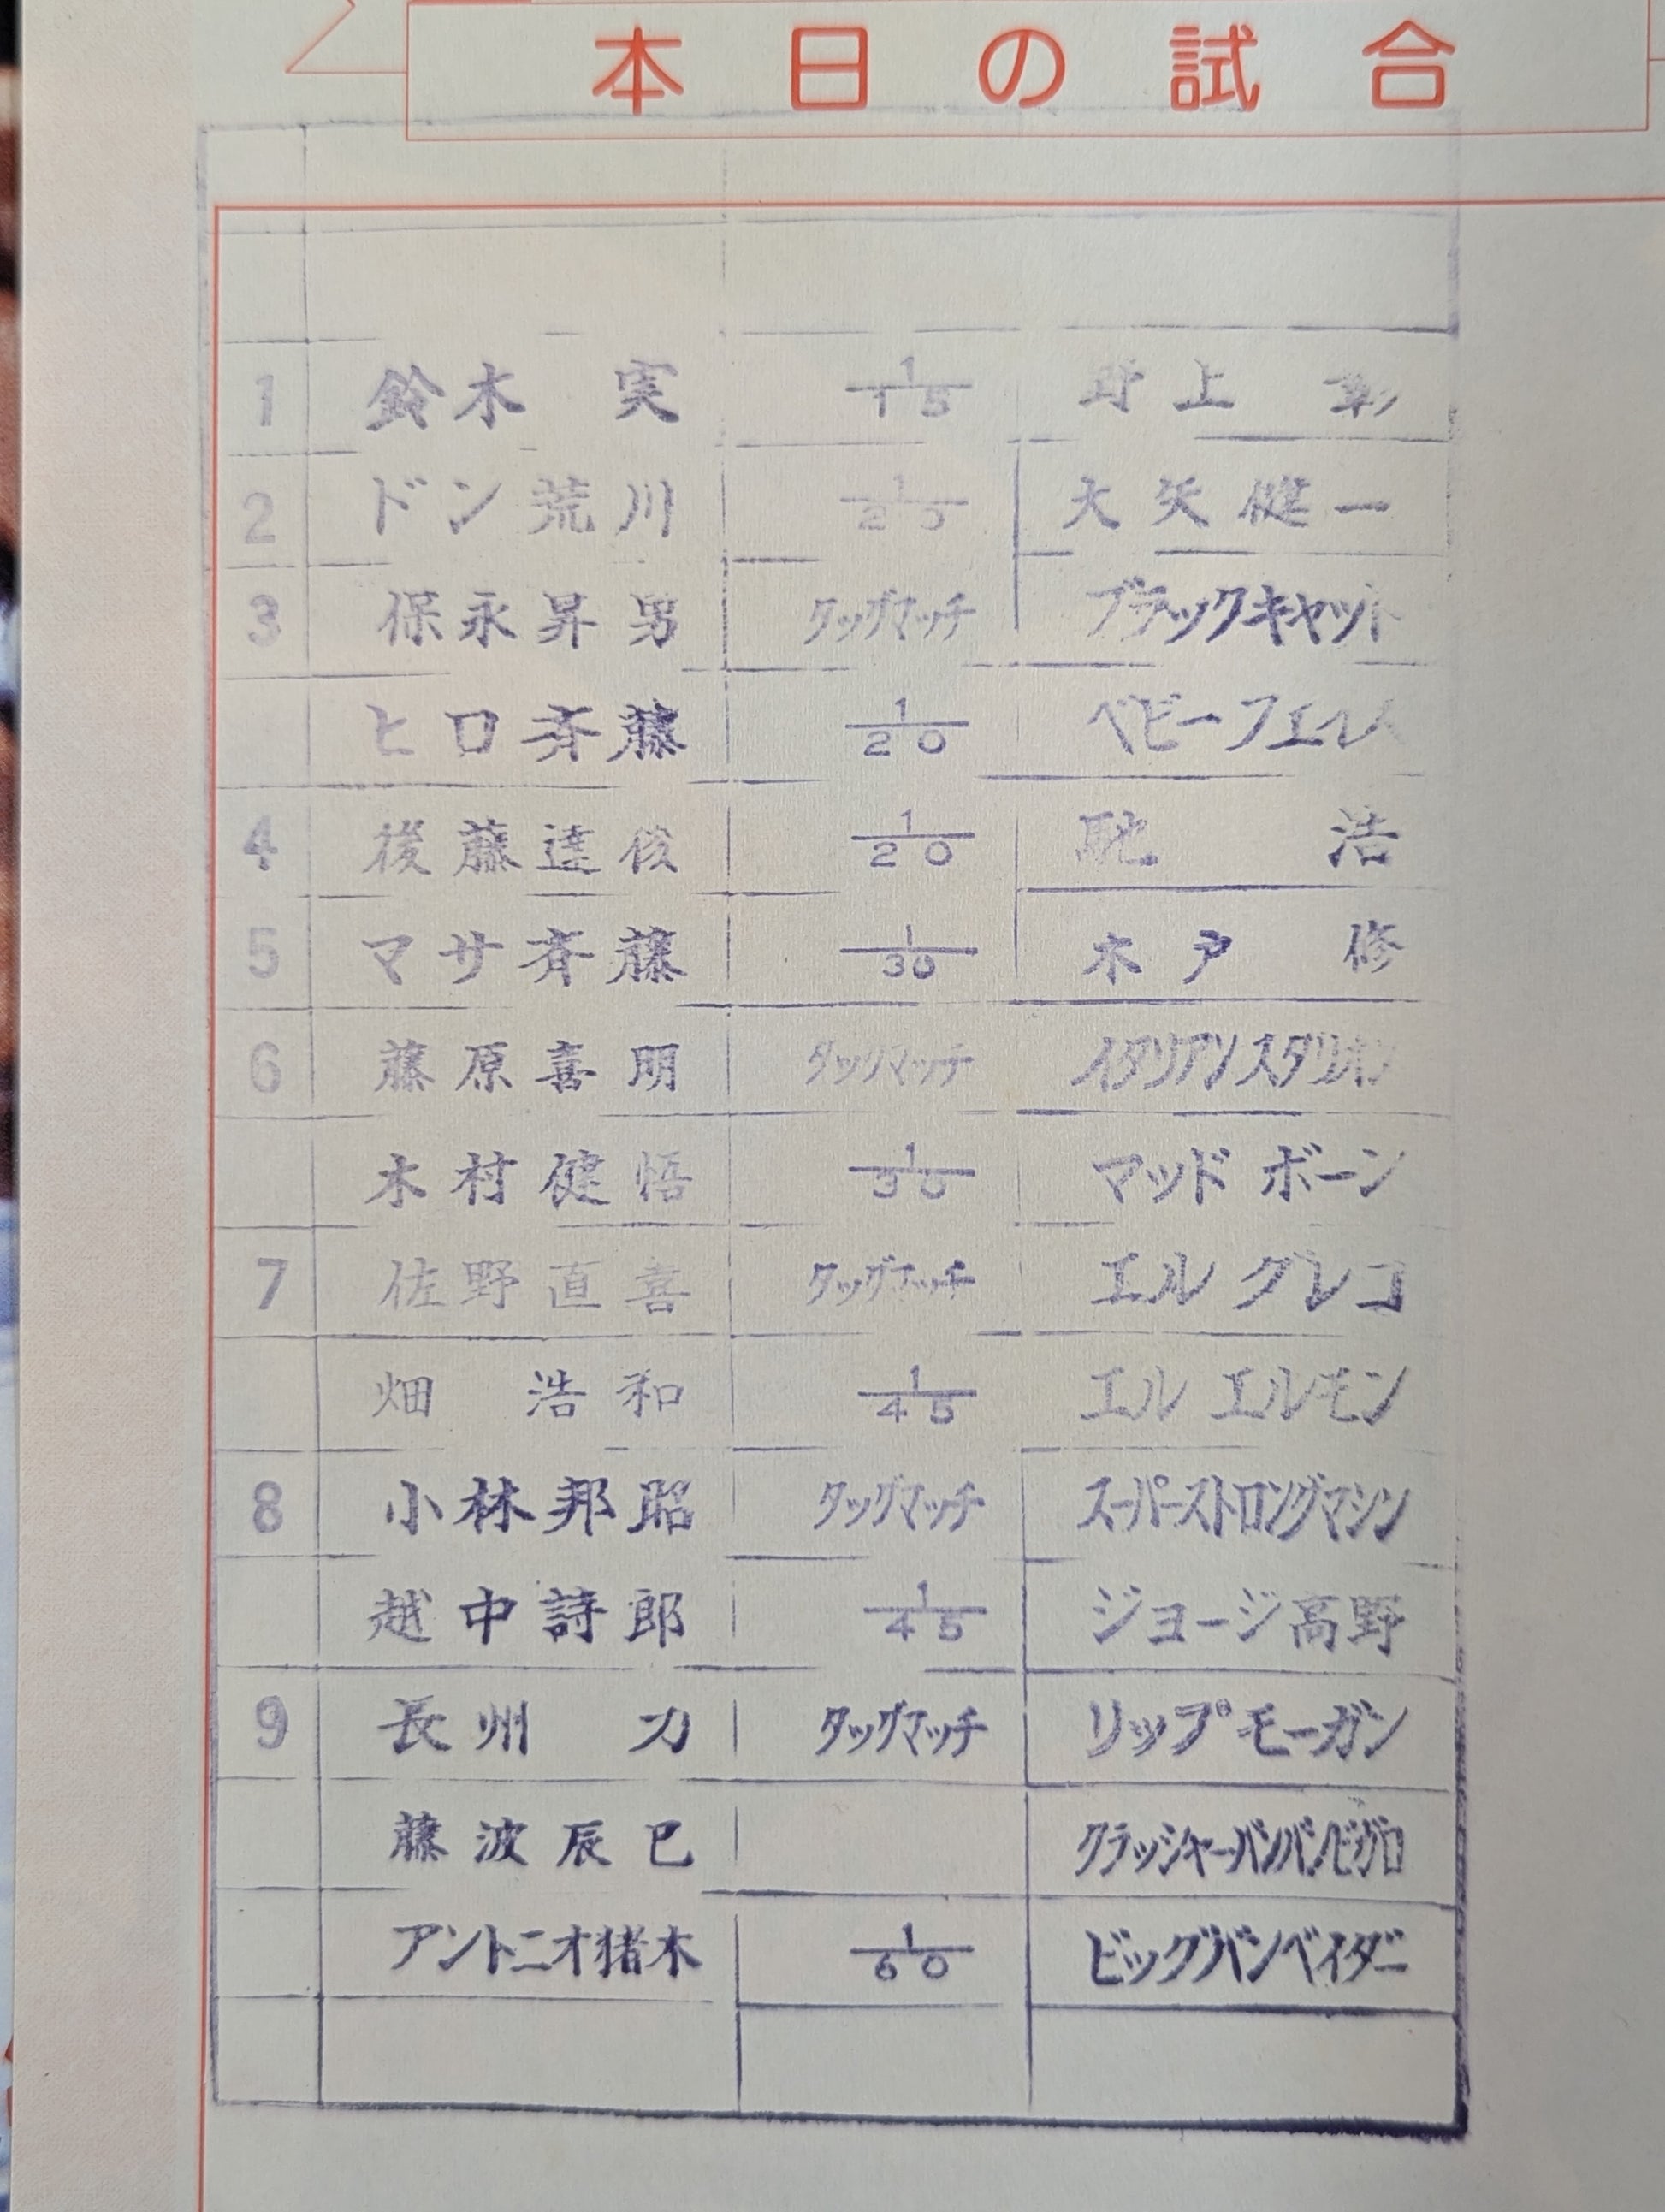 本日の試合
1 鈴木 実 1/15 野上 彰
2 ドン荒川 1/20 大矢健一
3 保永昇男 タッグマッチ ブラックキャット
ヒロ斉藤 1/20 ベビーフェイス
4 後藤達俊 1/20 馳 浩
5 マサ斉藤 1/30 木戸 修
6 藤原喜明 タッグマッチ イタリアンスタリオン
木村健悟 1/30 マッド ボーン
7 佐野直喜 タッグマッチ エル グレコ
畑 浩和 1/45 エル エルモン
8 小林邦昭 タッグマッチ スーパーストロングマシン
越中詩郎 1/45 ジョージ高野
9 長州 力 タッグマッチ リップモーガン
藤波辰巳 クラッシャーバンバンビガロ
アントニオ猪木 1/60 ビッグバンベイダー